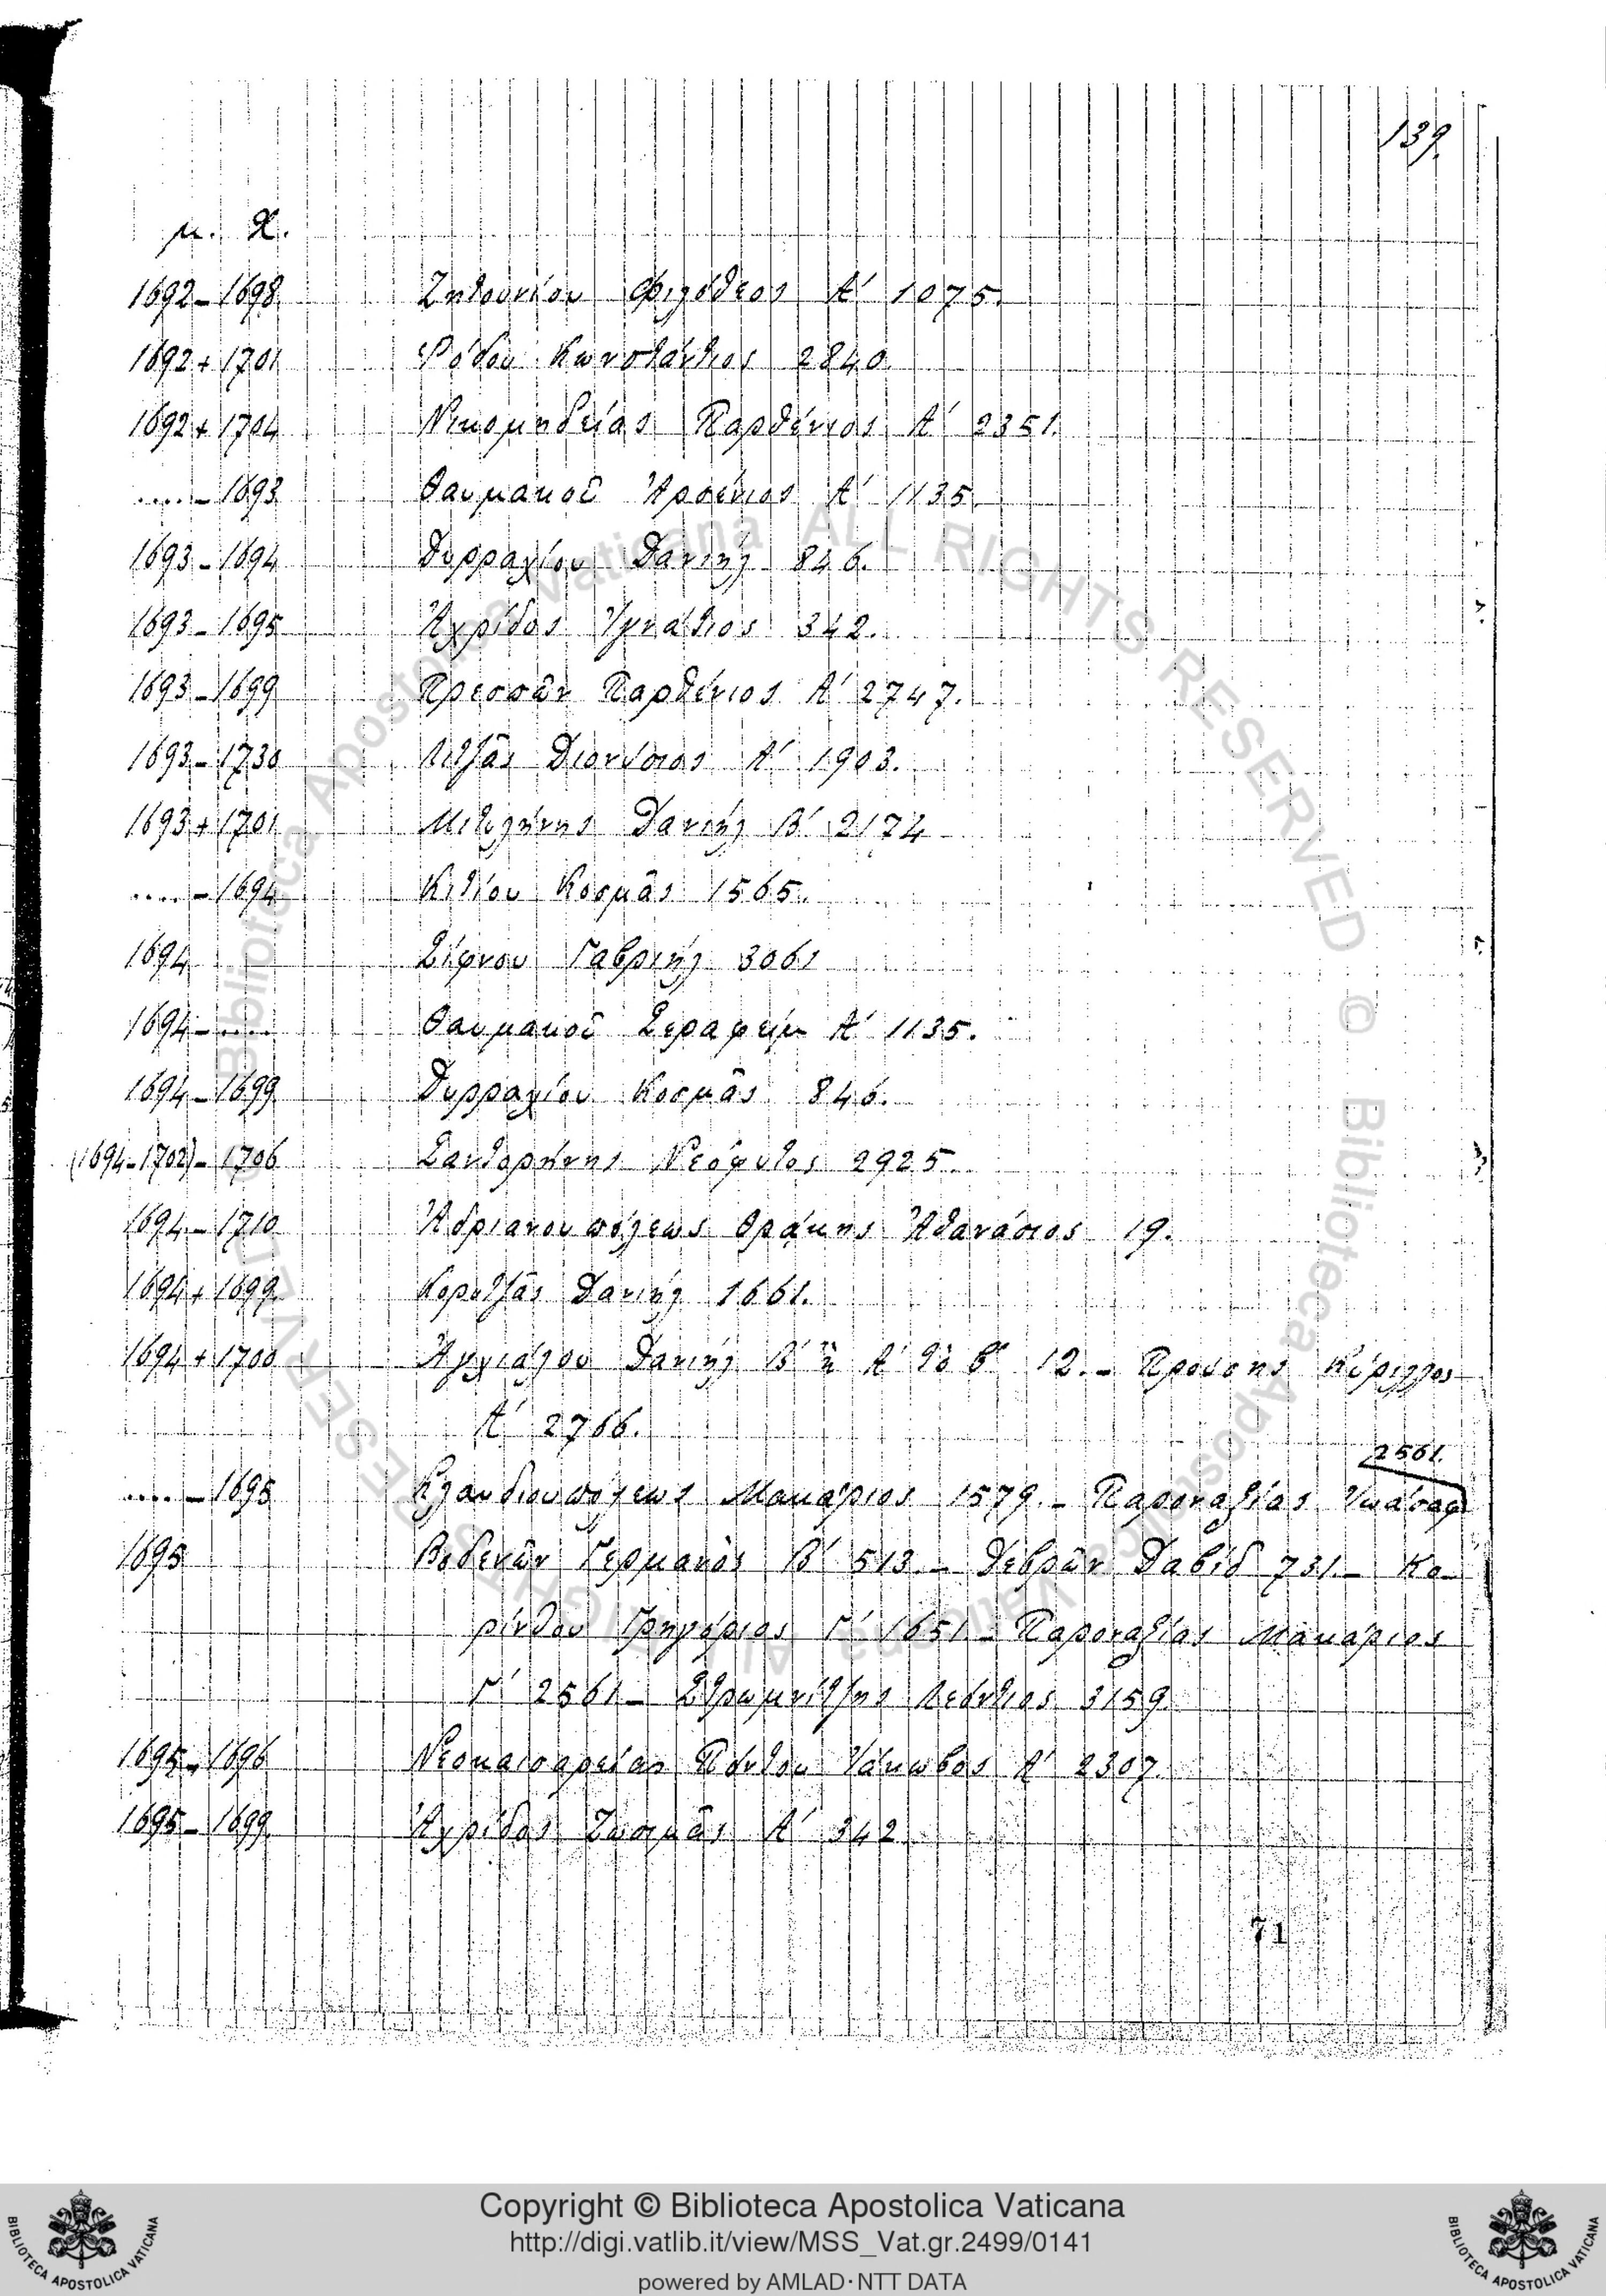 139.
μ. Χ.
1692 – 1698 Ζητουνίου Φιλόθεος Α΄ 1075.
1692 + 1701 Ῥόδου Κωνστάντιος 2840.
1692 + 1704 Νικομηδείας Παρθένιος Α΄ 2351.
.... – 1693 Θαυμακοῦ Ἀρσένιος Α΄ 1135.
1693 – 1694 Δυρραχίου Δανιήλ 846.
1693 – 1695 Ἀχρίδος Ἰγνάτιος 342.
1693 – 1699 Πρεσπῶν Παρθένιος Α΄ 2747.
1693 – 1730 Λιτζᾶς Διονύσιος Α΄ 1903.
1693 + 1701 Μιτυλήνης Δανιήλ Β΄ 2174
.... – 1694 Κιτίου Κοσμᾶς 1565.
1694 Σίφνου Γαβριήλ 3061
1694 – .... Θαυμακοῦ Σεραφείμ Α΄ 1135.
1694 – 1699 Δυρραχίου Κοσμᾶς 846.
(1694–1702) – 1706 Σαντορήνης Νεόφυτος 2925.
1694 – 1710 Ἀδριανουπόλεως Θράκης Ἀθανάσιος 19.
1694 + 1699 Κορυτζᾶς Δανιήλ 1661.
1694 + 1700 Ἀγχιάλου Δανιήλ Β΄ ἢ Α΄ τὸ β΄ 12. – Προύσης Κύριλλος
Α΄ 2766.
2561.
.... – 1695 Κλαυδιουπόλεως Μακάριος 1579. – Παροναξίας Ἰωάσαφ
1695 Βοδενῶν Γερμανὸς Β΄ 513. – Δεβρῶν Δαβίδ 731. – Κο-
ρίνθου Γρηγόριος Γ΄ 1651 – Παροναξίας Μακάριος
Γ΄ 2561 – Στρωμνίτζης Λεόντιος 3159.
1695 – 1696 Νεοκαισαρείας Πόντου Ἰάκωβος Α΄ 2307.
1695 – 1699 Ἀχρίδος Ζωσιμᾶς Α΄ 342
71
Biblioteca Apostolica Vaticana ALL RIGHTS RESERVED © Biblioteca Apostolica Vaticana ALL RIGHTS RESERVED ©
Copyright © Biblioteca Apostolica Vaticana
http://digi.vatlib.it/view/MSS_Vat.gr.2499/0141
powered by AMLAD·NTT DATA
BIBLIOTECA APOSTOLICA VATICANA
BIBLIOTECA APOSTOLICA VATICANA